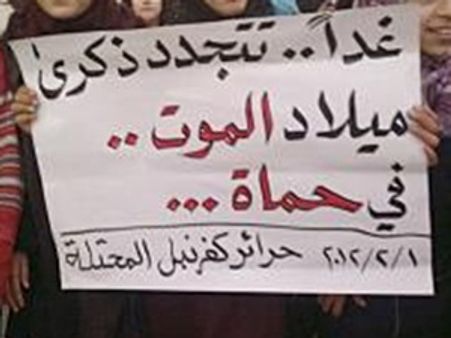 غداً.. تتجدد ذكرى
ميلاد الموت..
في حماة...
٢٠١٢/٢/١ حرائر كفرنبل المحتلة